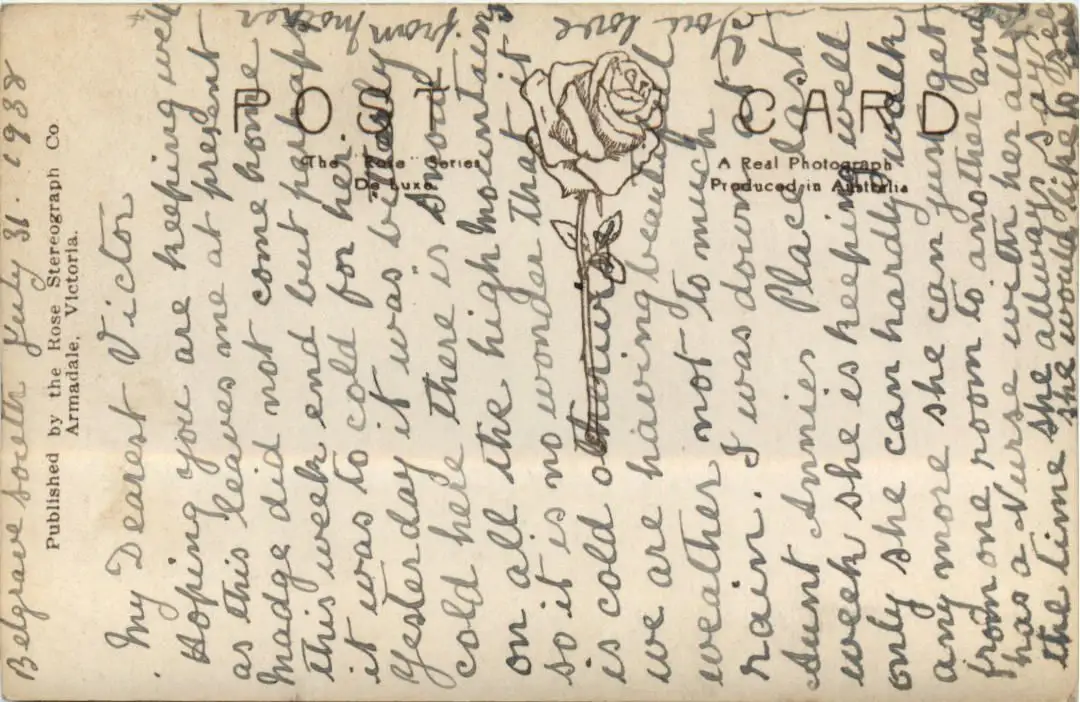 POST CARD
The "Rose" Series
De Luxe
A Real Photograph
Produced in Australia
Published by the Rose Stereograph Co.
Armadale, Victoria.
Belgrave South July 31. 1938
My Dearest Victor
Hoping you are keeping well
as this leaves me at present
Madge did not come home
this week end but perhaps
it was to cold for her.
Yesterday it was bitterly
cold here there is snow
on all the high mountains
so it is no wonder that it
is cold otherwise
we are having beautiful
weather not to much
rain. I was down at
Aunt Annies Place last
week she is keeping well
only she can hardly walk
any more she can just get
from one room to another and
has a Nurse with her all
the time she always says
she would like to see
you love
from mother